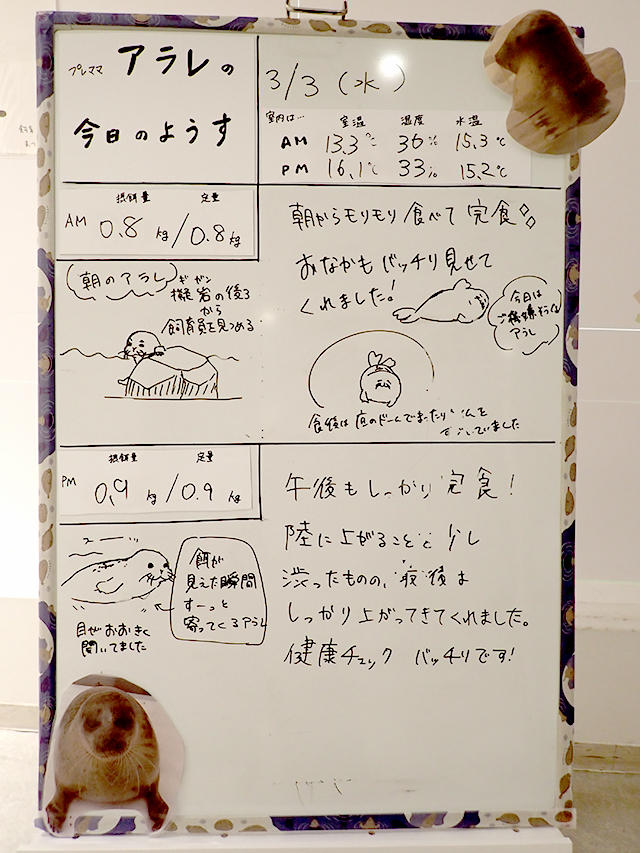 プレママ アラレの
今日のようす
3/3(水)
室内は… 室温 湿度 水温
AM 13.3℃ 36% 15.3℃
PM 16.1℃ 33% 15.2℃
摂餌量 定量
AM 0.8kg/0.8kg
朝からモリモリ食べて完食
おなかもバッチリ見せて
くれました!
今日は
ご機嫌そうな
アラレ
朝のアラレ
ギガン
擬岩の後ろ
から
飼育員を見つめる
食後は庭のドームでまったり
ました
摂餌量 定量
PM 0.9kg/0.9kg
午後もしっかり完食!
陸に上がることを少し
渋ったものの、最後は
しっかり上がってきてくれました。
健康チェック バッチリです!
スーーー…
餌が
見えた瞬間
すーっと
寄ってくるアラレ
目がおおきく
開いてました